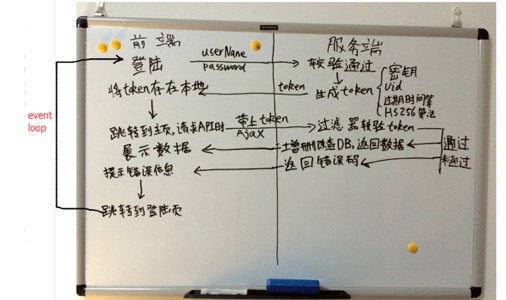 前端
服务端
登陆
userName
password
较验通过
将token存在本地
token
生成token
密钥
Uid
过期时间等
HS256算法
event
loop
跳转到主页,请求API时
带上token
Ajax
过滤器较验token
展示数据
增删改查DB,返回数据
通过
提示错误信息
返回错误码
未通过
跳转到登陆页